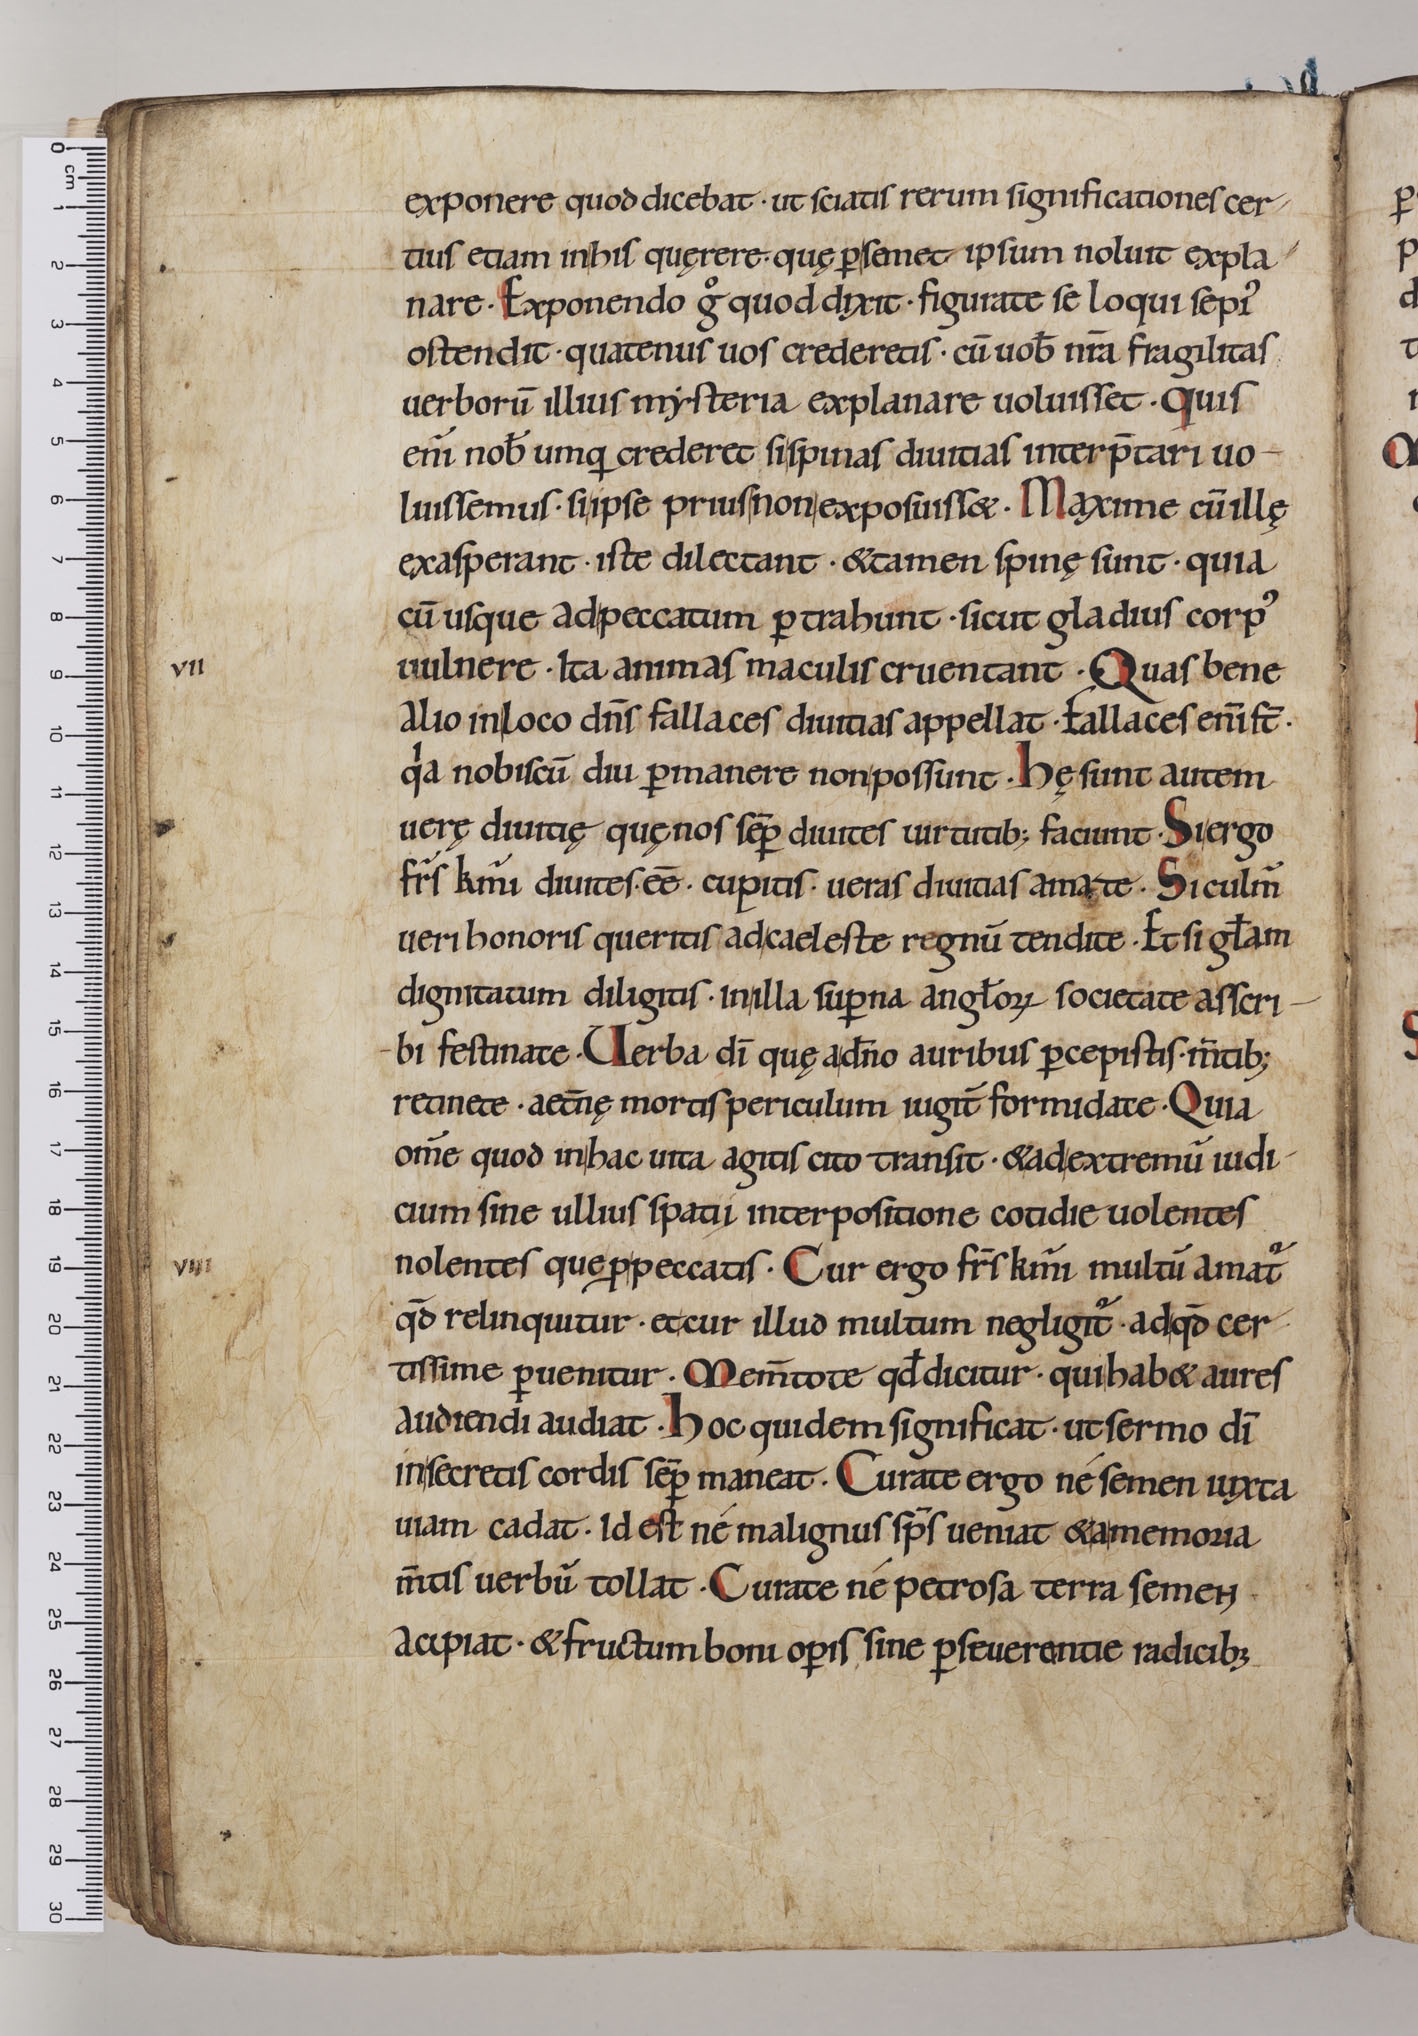 exponere quod dicebat · ut sciatis rerum significationes cer-
tius etiam in his quęrere· quę p̱ semet ipsum noluit expla-
nare · Exponendo gͦ quod dixit · figurate se loqui sepi᾿
ostendit · quatenus uos crederetis · cū uob̄ nr̄a fragilitas
uerborū illius mẏsteria explanare uoluisset · Quis
em̄ nob̄ umq̄ crederet si spinas diuitias interp̄tari uo-
luissemus · si ipse prius non exposuiss& · Maxime cū illę
exasperant · iste dilectant · & tamen spinę sunt · quia
cū usque ad peccatum ꝑtrahunt · sicut gladius corpꝰ
uulnere · Ita animas maculis cruentant · Quas bene
alio in loco dn̄s fallaces diuitias appellat · Fallaces eni̅ st̄ ·
qͥa nobiscū diu ꝑmanere non possunt · hę sunt autem
uerę diuitię quę nos sēp̱ diuites uirtutib; faciunt · Si ergo
fr̄s km̄i diuites · eē · cupitis · ueras diuitias amate · Si culm̄
ueri honoris queritis ad caeleste regnū tendite · Et si gł̄am
dignitatum diligitis · in illa suꝑna angl̄oꝝ societate asscri-
bi festinate · Uerba dī quę a dn̄o auribus ꝑcepistis · m̄tib;
retinete · aet̄nę mortis periculum iugit̄ formidate · Quia
om̄e quod in hac uita agitis cito transit · & ad extremū iudi-
cium sine ullius spatii interpositione cotidie uolentes
nolentes que ꝓpeccatis · Cur ergo fr̄s km̄i multū amat᷑
qd̄ relinquitur · et cur illud multum negligit᷑ · ad qd̄ cer-
tissime ꝑuenitur · Mem̄tote qd̄ dicitur · qui hab& aures
audiendi audiat · hoc quidem significat · ut sermo dī
in secretis cordis sēp̱ maneat · Curate ergo né semen iuxta
uiam cadat · Id est né malignus sp̄s ueniat & a memoria
m̄tis uerbū tollat · Curate né petrosa terra semen
acipiat · & fructum boni oꝑis sine ꝑseuerentie radicib;
vii
viii